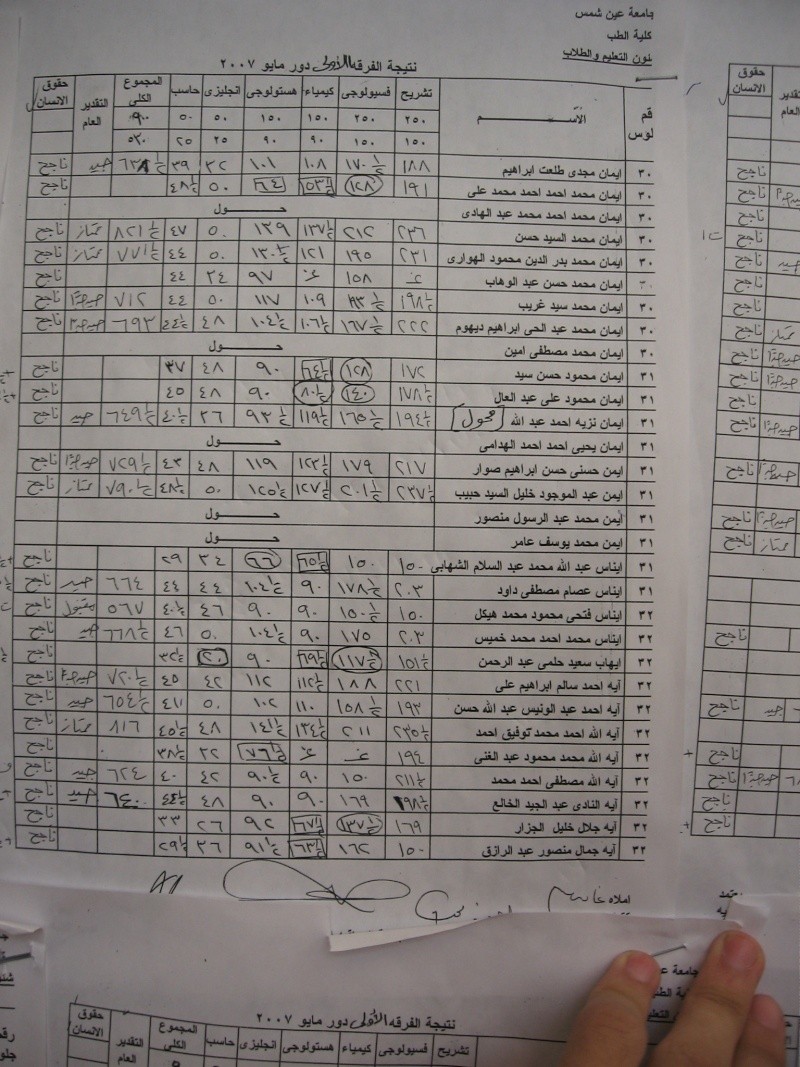 جامعة عين شمس
كلية الطب
شئون التعليم والطلاب
نتيجة الفرقه الأولى دور مايو ٢٠٠٧
الاسم تشريح فسيولوجى كيمياء هستولوجى انجليزى حاسب المجموع الكلى التقدير العام حقوق الانسان
٢٥٠ ٢٥٠ ١٥٠ ١٥٠ ٥٠ ٥٠ ٩٠٠
١٥٠ ١٥٠ ٩٠ ٩٠ ٢٥ ٢٥ ٥٣٠
٣٠ ايمان مجدى طلعت ابراهيم ١٨٨ ١٧٠½ ١٠٨ ١٠١ ٣٢ ٣٩ جيد ناجح
٣٠ ايمان محمد احمد احمد محمد على ١٩١ ١٢٨ ٥٣½ ٦٤ ٥٠ ٤٨½ ناجح
٣٠ ايمان محمد احمد محمد عبد الهادى حول
٣٠ ايمان محمد السيد حسن ٢٣٦ ٢١٢ ١٣٧½ ١٣٩ ٥٠ ٤٧ ٨٢١½ ممتاز ناجح
٣٠ ايمان محمد بدر الدين محمود الهوارى ٢٣١ ١٩٥ ١٢١ ١٣٠½ ٥٠ ٤٤ ٧٧١½ ممتاز ناجح
٣٠ ايمان محمد حسن عبد الوهاب غ ١٥٨ غ ٩٧ ٣٤ ٤٤ ناجح
٣٠ ايمان محمد سيد غريب ١٩٨½ ١٩٣½ ١٠٩ ١١٧ ٥٠ ٤٤ ٧١٢ جيد جدا ناجح
٣٠ ايمان محمد عبد الحى ابراهيم ديهوم ٢٢٢ ١٦٧½ ١٠٦½ ١٠٤½ ٤٨ ٤٤½ ٦٩٣ جيد جدا ناجح
٣٠ ايمان محمد مصطفى امين حول
٣١ ايمان محمود حسن سيد ١٧٢ ١٢٨ ٦٤½ ٩٠ ٤٨ ٣٧ ناجح
٣١ ايمان محمود على عبد العال ١٧٨½ ١٤٠ ٨٠½ ٩٠ ٤٨ ٤٥ ناجح
٣١ ايمان نزيه احمد عبد الله محول ١٩٤½ ١٦٥½ ١١٩½ ٩٣½ ٣٦ ٤٠½ ٦٤٩½ جيد ناجح
٣١ ايمان يحيى احمد احمد الهدامى حول
٣١ ايمن حسنى حسن ابراهيم صوار ٢١٧ ١٧٩ ١٢٣½ ١١٩ ٤٨ ٤٣ ٧٢٩½ جيد جدا ناجح
٣١ ايمن عبد الموجود خليل السيد حبيب ٢٣٧½ ٢٠١½ ١٢٧½ ١٢٥½ ٥٠ ٤٨½ ٧٩٠½ ممتاز ناجح
٣١ ايمن محمد عبد الرسول منصور حول
٣١ ايمن محمد يوسف عامر حول
٣١ ايناس عبد الله محمد عبد السلام الشهابى ١٥٠ ١٥٠ ٦٥½ ٦٦ ٣٤ ٢٩ ناجح
٣١ ايناس عصام مصطفى داود ٢٠٣ ١٧٨½ ٩٠ ١٠٤½ ٤٤ ٤٤ ٦٦٤ جيد ناجح
٣٢ ايناس فتحى محمود محمد هيكل ١٥٠ ١٥٠½ ٩٠ ٩٠ ٤٦ ٤٠½ ٥٦٧ مقبول ناجح
٣٢ ايناس محمد احمد محمد خميس ٢٠٣ ١٧٥ ٩٠ ١٠٤½ ٥٠ ٤٦ ٦٦٨½ جيد ناجح
٣٢ ايهاب سعيد حلمى عبد الرحمن ١٥١½ ١١٧½ ٦٩½ ٩٠ ٢٠ ٣٢½ ناجح
٣٢ آيه احمد سالم ابراهيم على ٢٢١ ١٨٨ ١١٢½ ١١٢ ٤٢ ٤٥ ٧٢٠½ جيد جدا ناجح
٣٢ آيه احمد عبد الونيس عبد الله حسن ١٩٣ ١٥٨½ ١١٠ ١٠٢ ٥٠ ٤١ ٦٥٤½ جيد ناجح
٣٢ آيه الله احمد محمد توفيق احمد ٢٣٥½ ٢١١ ١٣٤½ ١٤١½ ٤٨ ٤٥½ ٨١٦ ممتاز ناجح
٣٢ آيه الله محمد محمود عبد الغنى ١٩٤ غ غ ٧٦½ ٣٢ ٣٨½ ناجح
٣٢ آيه الله مصطفى احمد محمد ٢١١½ ١٥٠ ٩٠ ٩٠½ ٤٢ ٤٠ ٦٢٤ جيد ناجح
٣٢ آيه النادى عبد الجيد الخالع ١٩٨½ ١٦٩ ٩٠ ٩٠ ٤٨ ٤٤½ ٦٤٠ جيد ناجح
٣٢ آيه جلال خليل الجزار ١٦٩ ١٣٧½ ٦٧½ ٩٢ ٢٦ ٣٣ ناجح
٣٢ آيه جمال منصور عبد الرازق ١٥٠ ١٦٢ ٦٣½ ٩١½ ٣٦ ٢٩½ ناجح
املاه
جامعة
نتيجة الفرقه الأولى دور مايو ٢٠٠٧
تشريح فسيولوجى كيمياء هستولوجى انجليزى حاسب المجموع الكلى التقدير العام حقوق الانسان